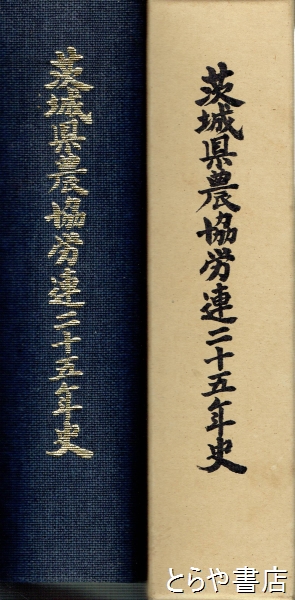 茨城県農協労連二十五年史
茨城県農協労連二十五年史
とらや書店